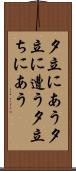 夕立にあう夕
立に遭う夕立
ちにあう